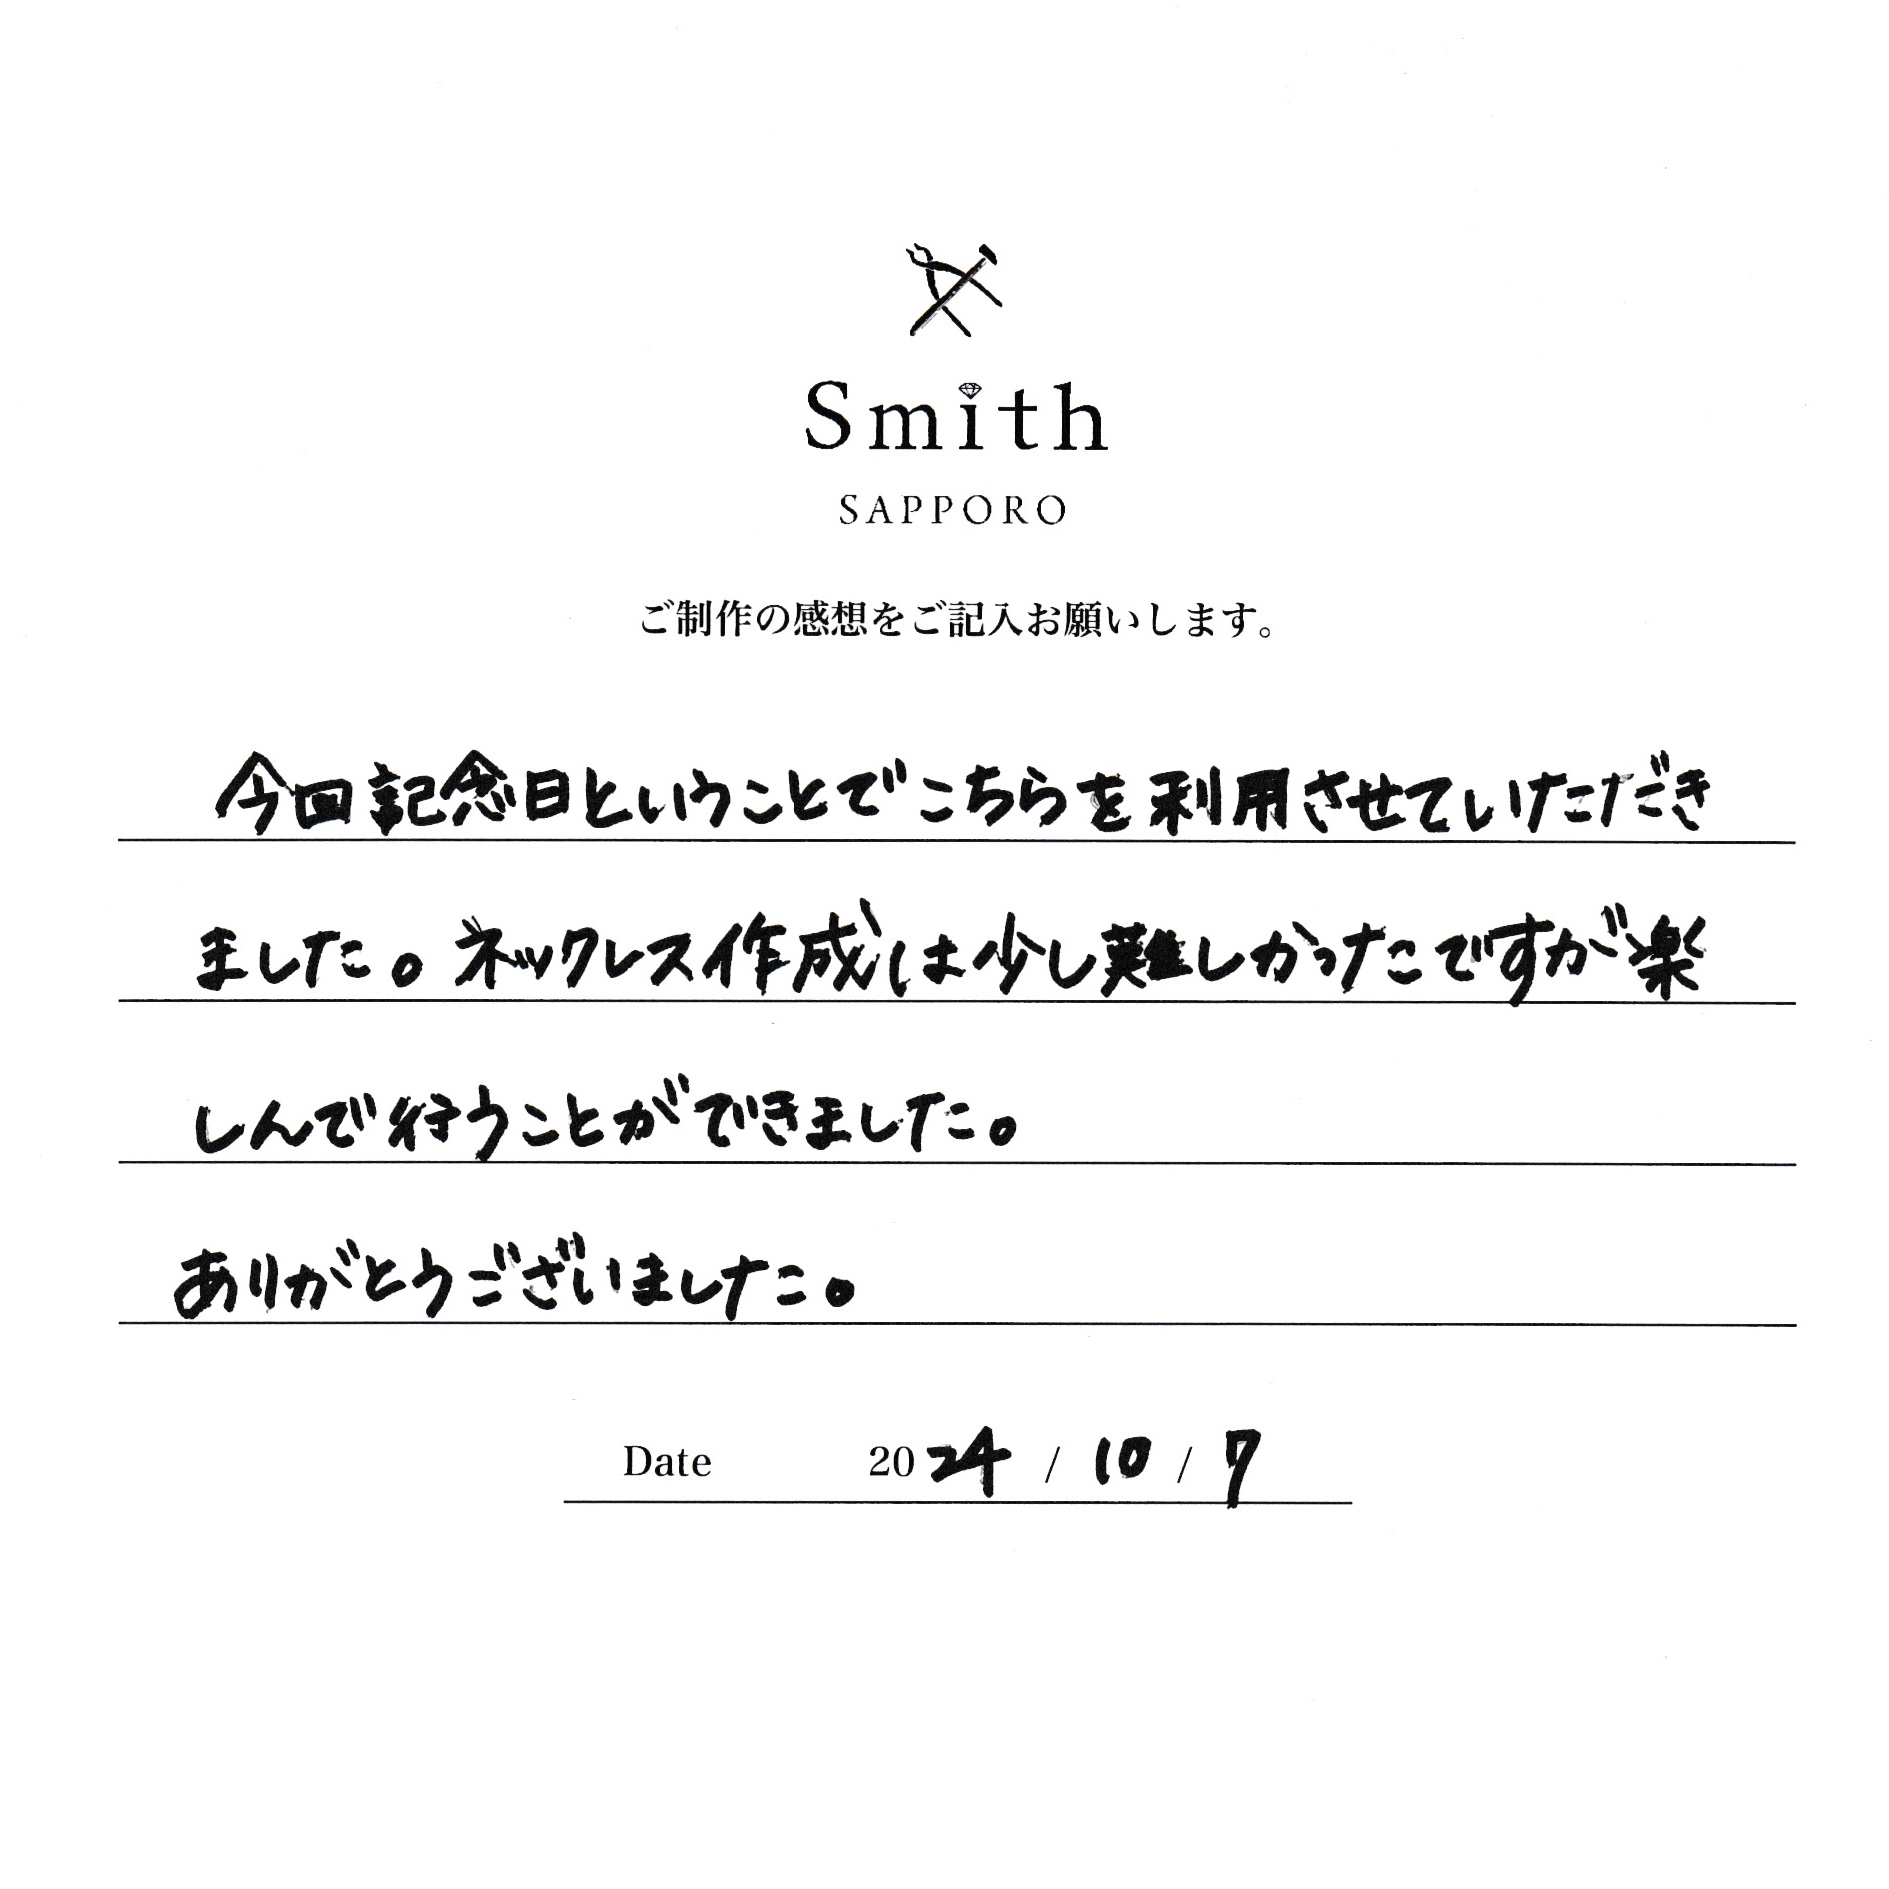 Smith
SAPPORO
ご制作の感想をご記入お願いします。
今回記念日ということでこちらを利用させていただき
ました。ネックレス作成は少し難しかったですが楽
しんで行うことができました。
ありがとうございました。
Date 2024 / 10 / 7